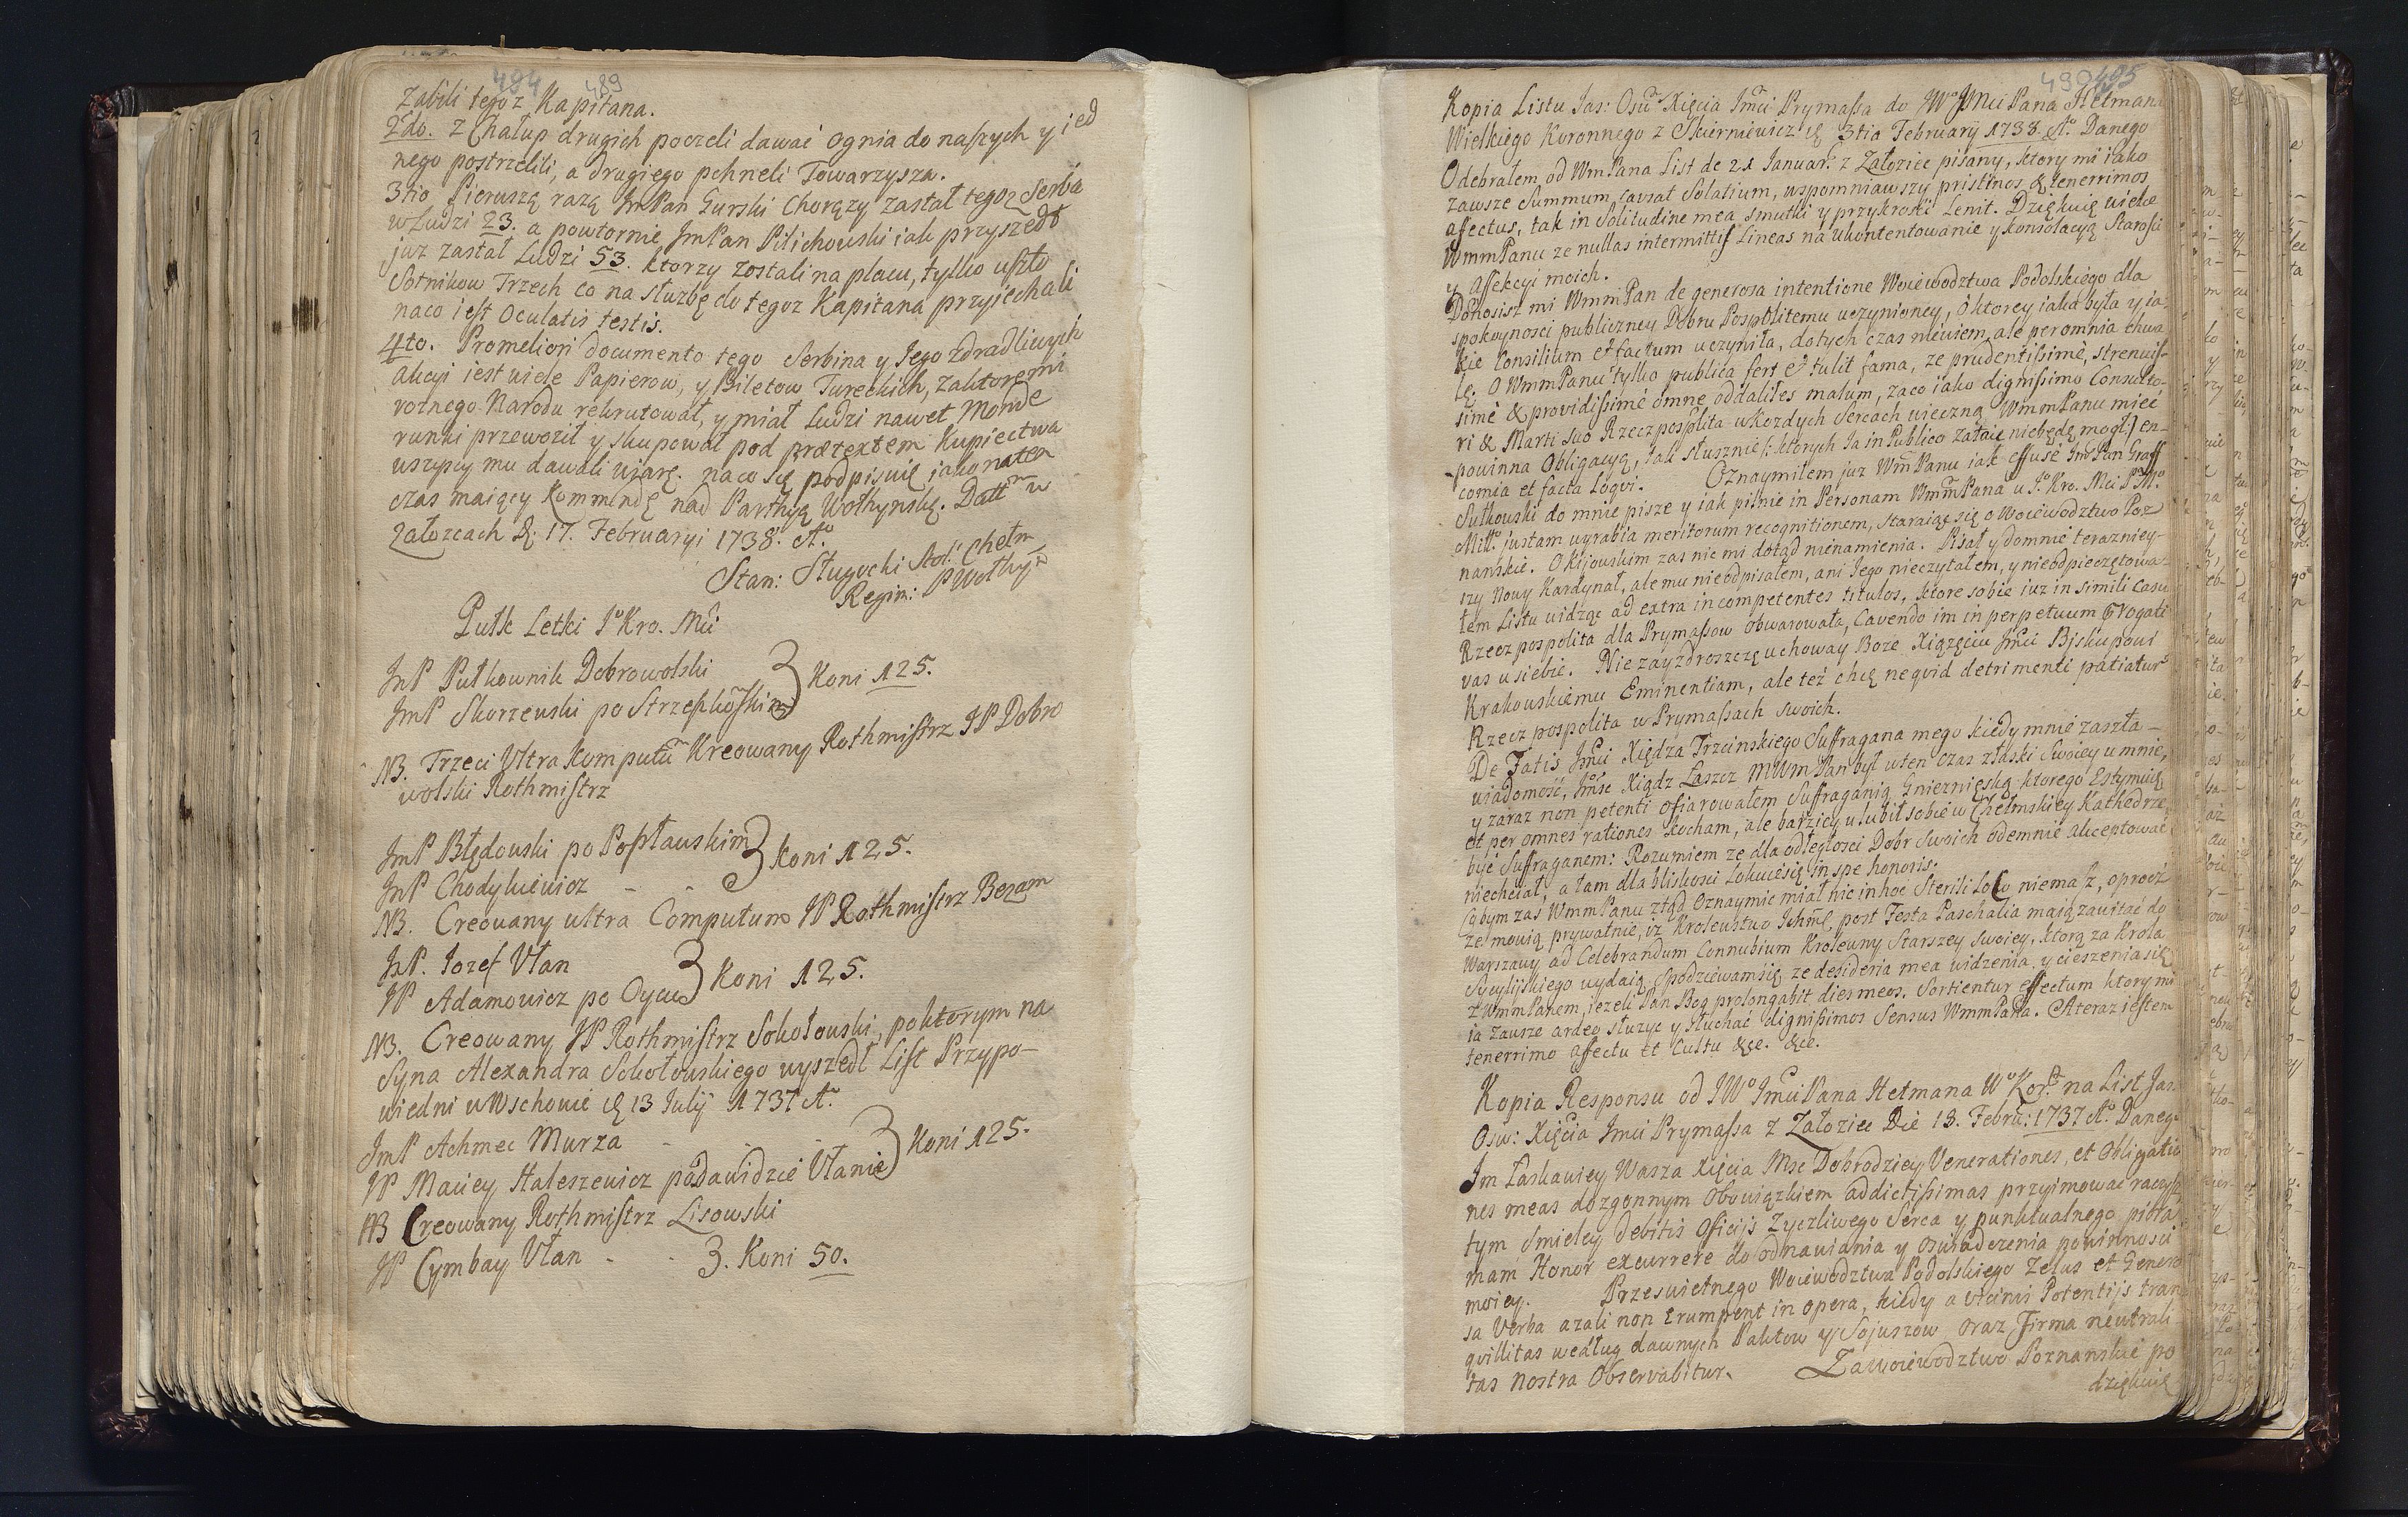 494 489
Zabili tegoz Kapitana.
2do. z Chałup drugich poczeli dawać ognia do naszych y ied
nego postrzelili, a drugiego pchneli Towarzysza.
3tio Pieruszą razą ImPan Gurski Chorązy zastał tegoz Serba
w Ludzi 23. a powtornie ImPan Pilichouski iak przyszedł
juz zastał Ludzi 53. ktorzy zostali na placu, tylko uszło
Sotnikow Trzech co na służbę do tegoz Kapitana przyiechali
naco iest Oculatis testis.
4to. Promeliori documento tego Serbina y Jego zdradliwych
akcyi iest wiele Papierow, y Biletow Tureckich, zaktoremi
roznego Narodu rekrutował, y miał Ludzi nawet Monde
runki przewoził y skupował pod prætextem Kupiectwa
uszyscy mu dawali wiarę. naco się podpisuię iako naten
czas maiący Kommendę nad Parthyą Wołhynską. Datt m w
Załozcach d. 17. Februaryi 1738. Ao
Stan: Sługocki Stol: Chełm
Regim: PWołhyn
Pułk Letki Jo Kro. Mci
JmP Pułkownik Dobrowolski
JmP Skorzewski po Strzeszkoskim } Koni 125.
NB. Trzeci Vltra Komputu Kreowany Rothmistrz JP Dobro
wolski Rothmistrz
JmP Błędouski po Popłauskim
JmP Chodykiewicz - - } Koni 125.
NB. Creowany ultra Computum JP Rothmistrz Bezam
JmP. Jozef Vłan
JP Adamowicz po Oycu } Koni 125.
NB. Creowany JP Rothmistrz Sokołouski, poktorym na
Syna Alexandra Sokołouskiego wyszedł List Przypo-
wiedni w Wschowie d. 13 Julij 1737 Ao
JmP Achmec Murza - - -
JP Maciey Haleszewicz po Dawidzie Vłanie } Koni 125.
NB Creowany Rothmistrz Lisowski
JP Cymbay Vłan - - 3. Koni 50.
490 495
Kopia Listu Jas: Osw Xięcia Jmci Prymassa do JWo JMci Pana Hetmana
Wielkiego Koronnego z Skierniewicz d. 3tia February 1738. Ao. Danego
Odebrałem od WmPana List de 21 Januar: z Załoziec pisany, ktory mi iako
zawsze Summum causat Solatium, wspomniawszy pristinos & tenerrimos
affectus, tak in Solitudine mea smutki y przykrosci Lenit. Dziękuię wielce
WmmPanu ze nullas intermittis Lineas na ukontentowanie y konsolacyą Starosci
y affekcyi moich.
Donosisz mi WmmPan de generosa intentione Woiewodztwa Podolskiego dla
spokoynosci publiczney Dobru Pospolitemu uczynioney, o ktorey iaka była y ia-
kie Consilium et factum uczyniła, dotych czas niewiem, ale per omnia chwa
lę. O WmmPanu tylko publica fert & tulit fama, ze prudentissimè, strenuis-
simè & providissimè omne oddaliłes malum, zaco iako dignissimo Consulto-
ri & Marti suo Rzeczpospolita w kozdych Sercach wieczną WmmPanu mieć
powinna Obligacyą, tak słusznie /: ktorych Ja in Publico zataić niebędę mogł :/ en-
comia et facta Loqvi. Oznaymiłem juz WmPanu iak effusè JmPan Graff
Sułkouski do mnie pisze y iak pilnie in Personam WmmPana u Jo. Kro. Mci P. Mo
Mitto justam wyrabia meritorum recognitionem, staraiąc się o Woiewodztwo Poz
nańskie. O Kijouskim zas nic mi dotąd nienamienia. Pisał y domnie terazniey-
szy Nowy Kardynał, ale mu nie odpisałem, ani Jego nieczytałem, y nieodpieczętowa-
łem Listu widząc ad extra incompetentes titulos, ktore sobie juz in simili casu
Rzeczpospolita dla Prymassow obwarowała, Cavendo im in perpetuum Prærogati
vas u siebie. Niezayzdroszczę uchoway Boze Xiązęciu Jmci Biskupowi
Krakouskiemu Eminentiam, ale też chcę ne qvid detrimenti patiatur
Rzeczpospolita w Prymassach swoich.
De Fatis Jmci Xiędza Trzcinskiego Suffragana mego kiedy mnie zaszła -
wiadomość, Jmsc Xiądz Łaszcz MWmPan był w ten czas złaski Swoiey u mnie,
y zaraz non petenti ofiarowałem Suffraganią Gnieznięską, ktorego Estymuię
et per omnes rationes kocham, ale barziey ulubił sobie w Chełmskiey Kathedrze
być Suffraganem: Rozumiem ze dla odległosci Dobr Swoich odemnie akceptować
niechciał, a tam dla bliskosci Lokuie się in spe honoris.
Cobym zas WmmPanu ztąd Oznaymic miał nic in hoc Sterili Loco niemasz, oprocz
ze mouią prywatnie, iz Krolewstwo Ichmć post Festa Paschalia maią zawitać do
Warszawy ad Celebrandum Connubium Krolewny Starszey swoiey, ktorą za Krola
Sycylijskiego wydaią. Spodziewam się ze desideria mea widzenia y cieszenia się
z WmmPanem, jezeli Pan Bog prolongabit dies meos. Sortientur effectum ktorymi
ia zawsze ardeo słuzyc y słuchać dignissimos Sensus WmmPana. A teraz iestem
tenerrimo affectu et Cultu &ce. &ce.
Kopia Responsu od JWo JmciPana Hetmana Wo Kor. na List Jas:
Osw: Xięcia Jmci Prymassa z Załoziec Die 13. Febru: 1737 Ao. Danego
Im Łaskawiey Wasza Xięcia Msc Dobrodziey Venerationes, et Obligatio
nes meas dozgonnym Obowiązkiem addictissimas przyimować raczysz
tym smieley debitis Officijs Zyczliwego Serca y punktualnego piora
mam Honor excurrere do odnawiania y oswiadczenia powinnosci
moiey. Przeswietnego Woiewodztwa Podolskiego Zelus et Genero
sa Verba azali non erumpent in opera, kiedy a vicinis Potentijs tran
qvillitas według dawnych Paktow y Sojuszow oraz Firma neutrali
tas Nostra Observabitur. Za Woiewodztwo Poznanskie po
dziękuię